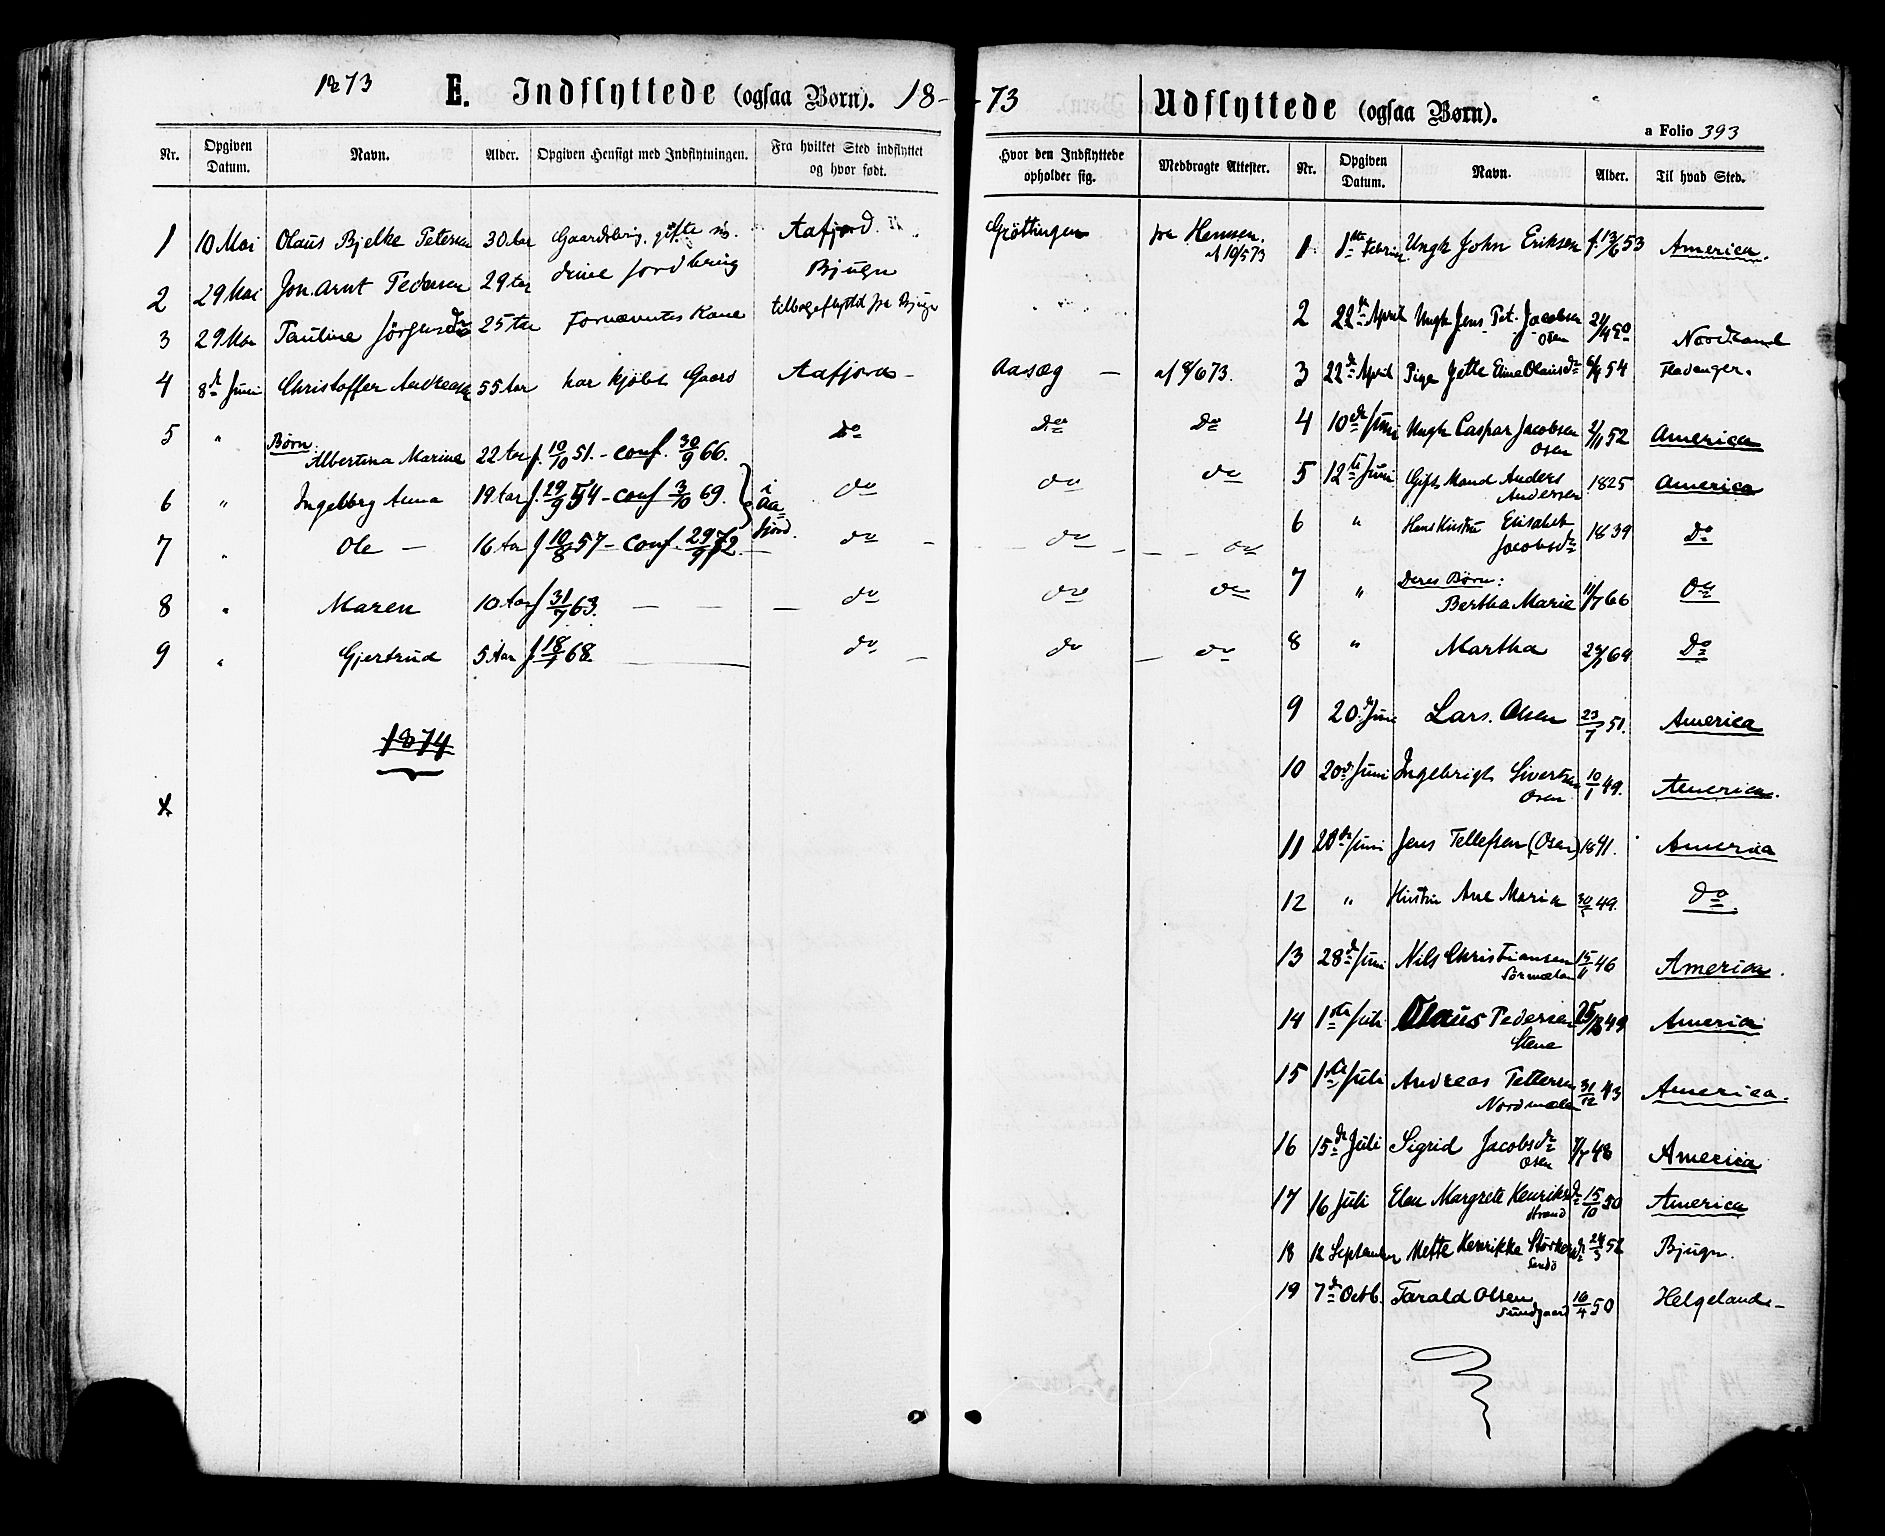 1873 E. Indflyttede (ogsaa Børn). 18-
Nr. Opgiven Datum. Navn. Alder. Opgiven Hensigt med Indflytningen. Fra hvilket Sted indflyttet og hvor født.
-73 Udflyttede (ogsaa Børn).
a Folio 393
Hvor den Indflyttede opholder sig. Medbragte Attester. Nr. Opgiven Datum. Navn. Alder. Til hvad Sted.
1 10 Mai Olaus Bjelke Petersen 30 Aar Aafjord Grøttingen fra Hemsen. af 10/5 73
2 29 Mai Jon Arnt Pedersen 29 Aar Bjugn
3 29 Mai Pauline Jørgensdr 25 Aar Fornævntes Kone tilbageflyttet fra Bjugn
4 8de Juni Christoffer Andreasen 55 Aar har kjøbt Gaard Aafjord - Aasæg - af 8/6 73.
5 " Børn: Albertina Marine 22 Aar f. 10/10 51. - conf. 30/9 66. Do Do Do
6 " Ingeborg Anna 19 Aar f. 29/9 54 - conf 3/10 69. } i Aafjord. Do Do Do
7 " Ole - 16 Aar f 10/8 57 - conf. 29/9 72 - Do - Do - Do
8 " Maren 10 Aar f 31/7 63. - Do Do Do
9 " Gjertrud 5 Aar f 18/1 68. - Do - Do - Do
1874
1 1ste Febru Ungk John Eriksen f. 13/6 53 America.
2 22de April Ungk Jens Pet. Jacobsen Osen Nordland
3 22de April Pige Jette Elina Olausdr 54 Fladanger.
4 10de Juni Ungk Caspar Jacobsen Osen 2/11 52 America
5 12te Juni Gift Mand Anders Andersen 1825 America
6 " Hans Hustru Elisabet Jacobsdr 1839 Do
7 " Deres Børn: Bertha Marie 11/7 66 Do
8 " Martha Do
9 20de Juni Lars Olsen 23/7 51. America
10 20de Juni Ingebrigt Sivertsen Osen 10/1 49. America.
11 20de Juni Jens Tellefsen (Osen) 1841. America
12 " Hustru Ane Maria 49. Do.
13 28de Juni Nils Christiansen Sørmælan 15/11 46 America.
14 1ste Juli Olaus Pedersen Stene 49 America
15 1ste Juli Andreas Pettersen Nordmælan 31/12 43 America.
16 15de Juli Sigrid Jacobsdr Osen 7/7 48 America
17 16 Juli Elen Margrete Henriksdr Strand 15/10 50 America
18 12 September Mette Henrikke Bjugn.
19 7de Octb. Tarald Olsen Sundgaard 16/4 50 Helgeland -